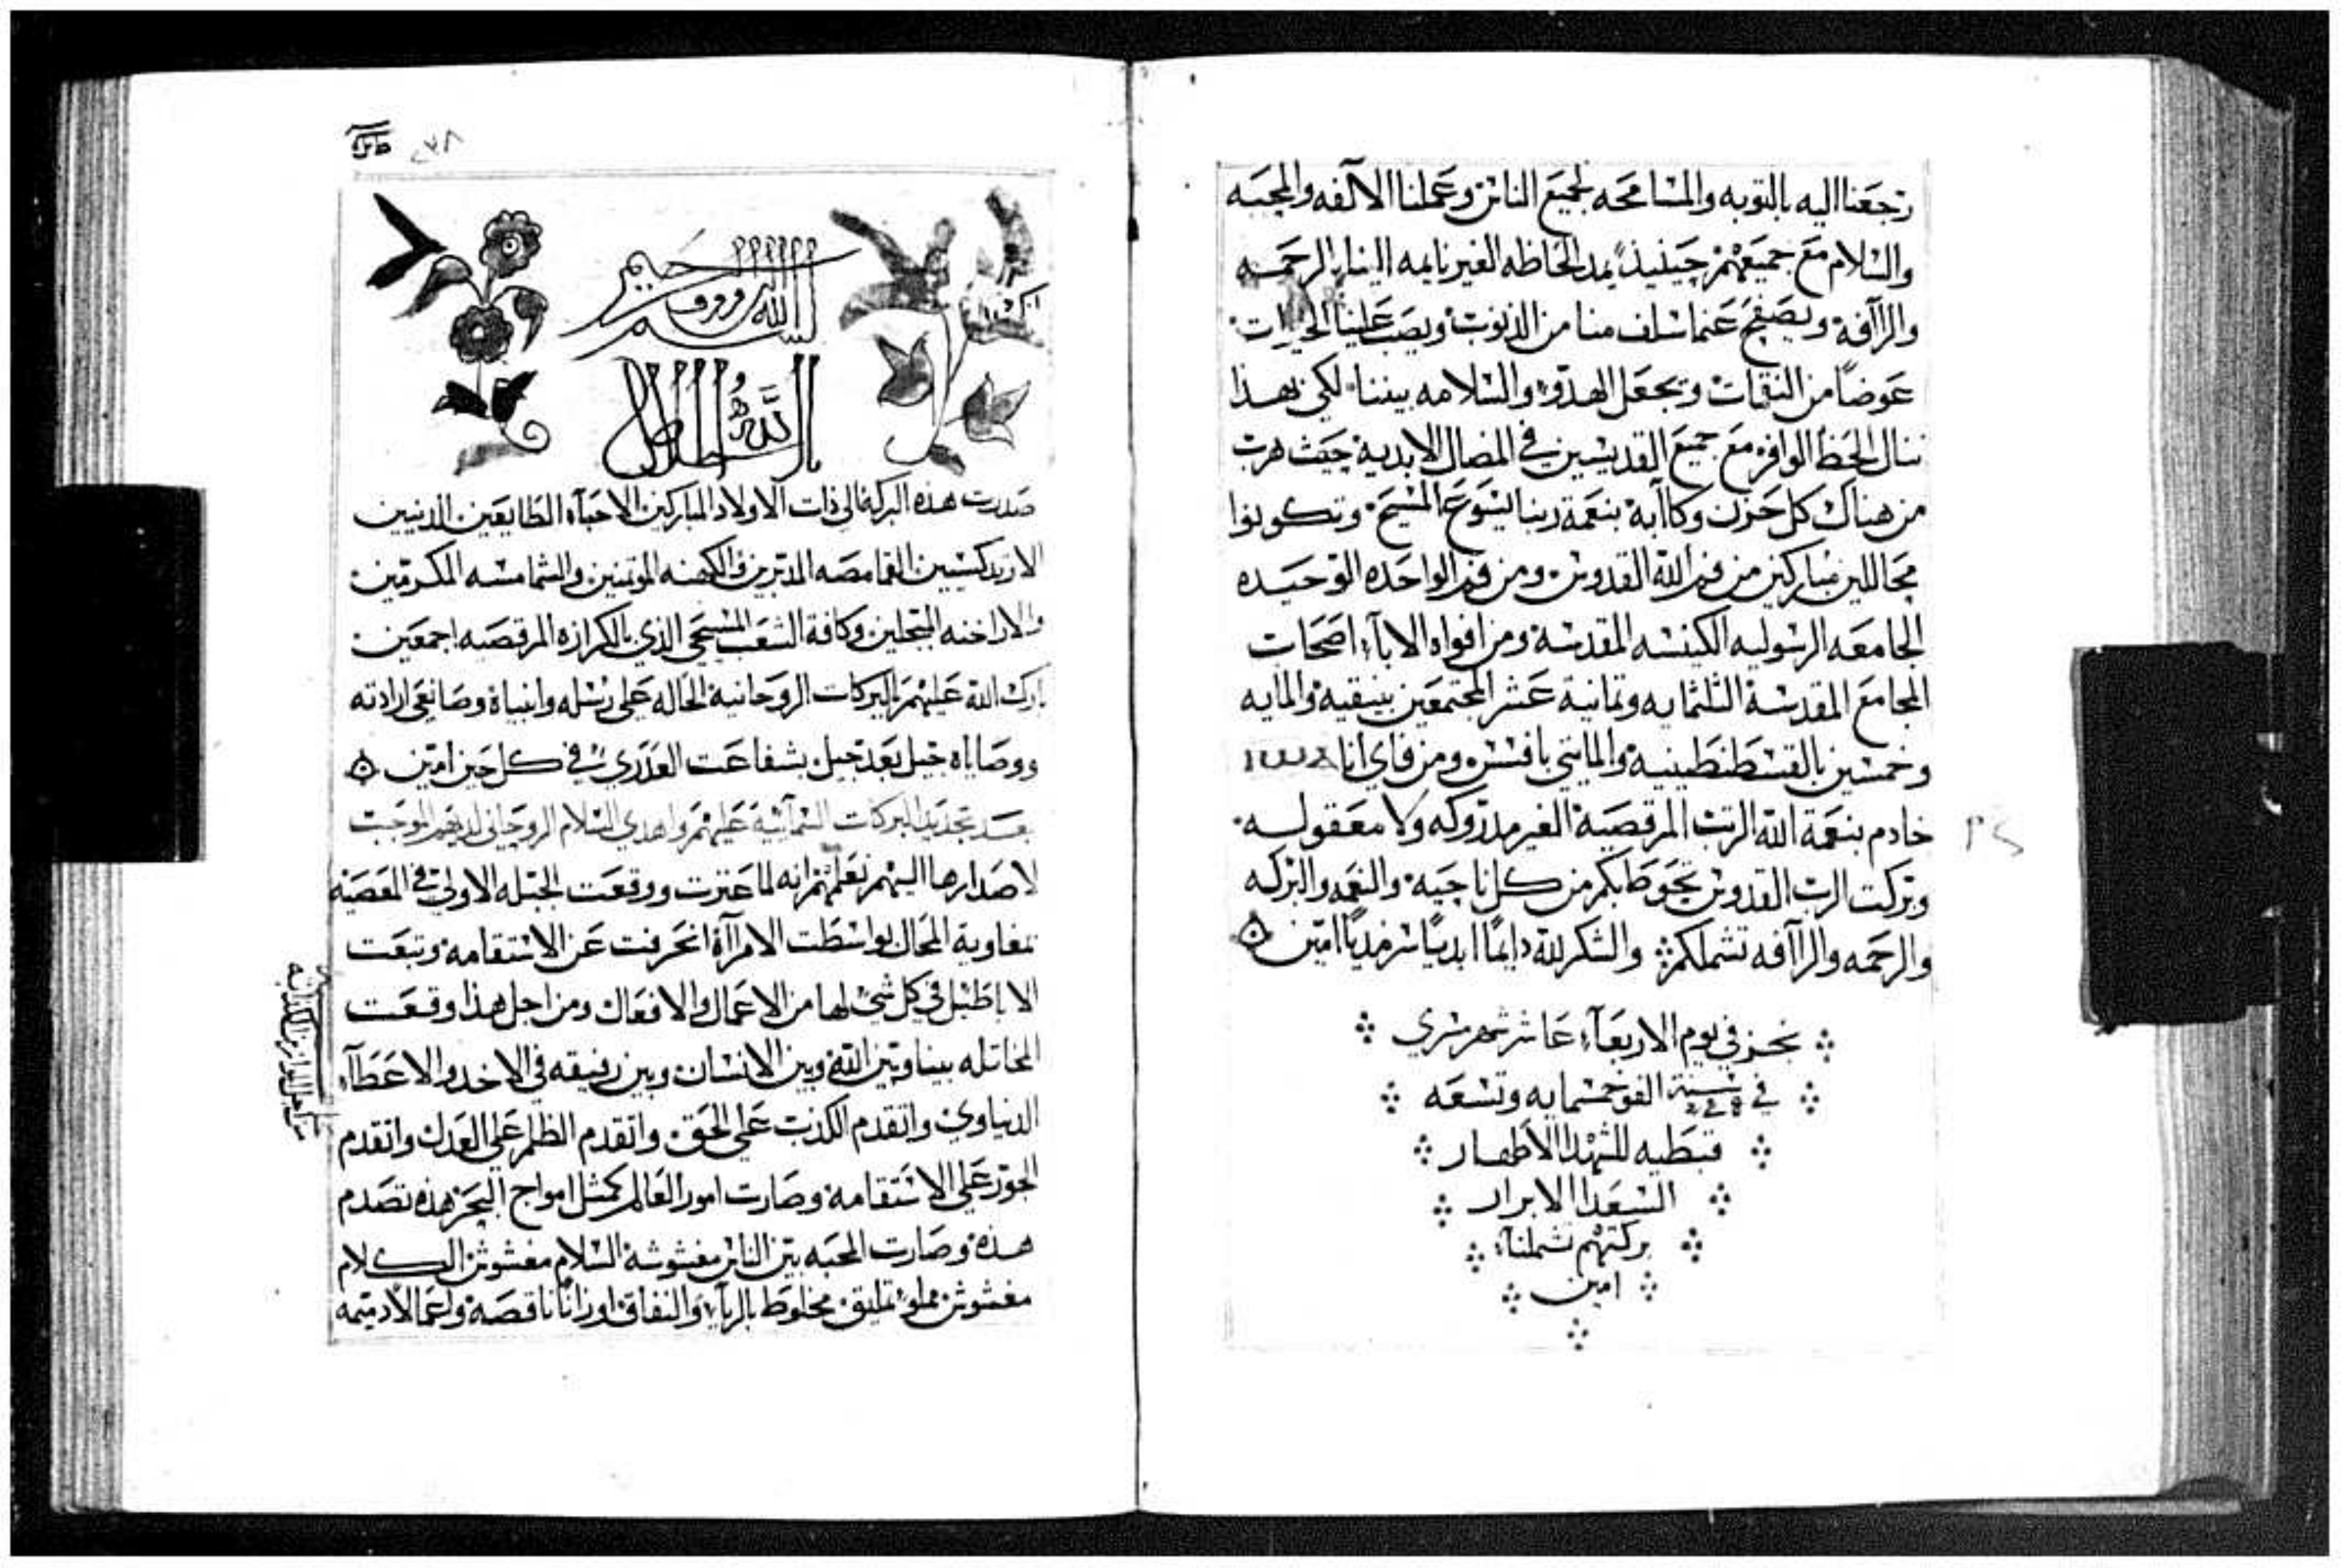 رجعنا اليه بالتوبه والمسامحه لجميع الناس وعملنا الالفه والمحبه
والسلام مع جميعهم حينيذ يمد الحاظه الغير نايمه الينا بالرحمه
والراآفة ويصفح عنما سلف منا من الذنوب ويصب علينا الخيرات
عوضًا من النقمات ويجعل الهدوّ والسلامه بيننا لكي بهذا
ننال الحظ الوافر مع جميع القديسين في المضال الابدية حيث هرب
من هناك كل حزن وكاآبة بنعمة ربنا يسوع المسيح وتكونوا
محاللين مباركين من فم الله القدوس ومن فم الواحده الوحيده
الجامعه الرسوليه الكنيسه المقدسة ومن افواه الاباء اصحاب
المجامع المقدسة الثلثمايه وثمانية عشر المجتمعين بنيقية والمايه
وخمسين بالقسطنطينيه والمايتي بافسس ومن فاي انا
خادم بنعمة الله الرتب المرقصية الغير مدروكه ولا معقوله
وبركت الرب القدوس تحوط بكم من كل ناحية والنعمه والبركه
والرحمه والراآفه تشملكم والشكر لله دايمًا ابديًا سرمديًا امين
نجز في يوم الاربعاء عاشر شهر مسري
في سنة الف وخمسمايه وتسعه
قبطيه للشهدا الاطهار
السعدا الابرار
بركتهم تشملنا
امين
٢٣٨
بسم الله الرووف
صدرت هذه البركة الى ذات الاولاد المباركين الاحباء الطايعين الدنيين
القمامصه المدبرين والكهنه الموتمنين والشمامسه المكرمين
والاراخنه المبجلين وكافة الشعب المسيحي الذي بالكرازه المرقصيه اجمعين
بارك الله عليهم بالبركات الروحانية الحاله على رسله وانبياه وصانعي ارادته
ووصاياه جيل بعد جيل بشفاعت العدرى في كل حين امين
بعد تجديد البركات السمآئية عليهم واهدي السلام الروحاني لديهم الموجب
لاصدارها اليهم نعلمهم انه لما عترت ووقعت الجبله الاولى في المعصية
بغاوية المحال بواسطت الامراآة انحرفت عن الاستقامه وتبعت
الاباطيل في كل شي لها من الاعمال والافعال ومن اجل هذا وقعت
المخاتله بيننا وبين الله وبين الانسان وبين رفيقه في الاخد والاعطآء
الدنياوي واتقدم الكذب على الحق واتقدم الظلم على العدل واتقدم
الجور على الاستقامه وصارت امور العالم كمثل امواج البحر هذه تصدم
هذه وصارت المحبه بين الناس مغشوشة السلام مغشوش الكلام
مغشوش مملو تمليق مخلوط بالرياء والنفاق اوزانًا ناقصه واعمالًا دميمه